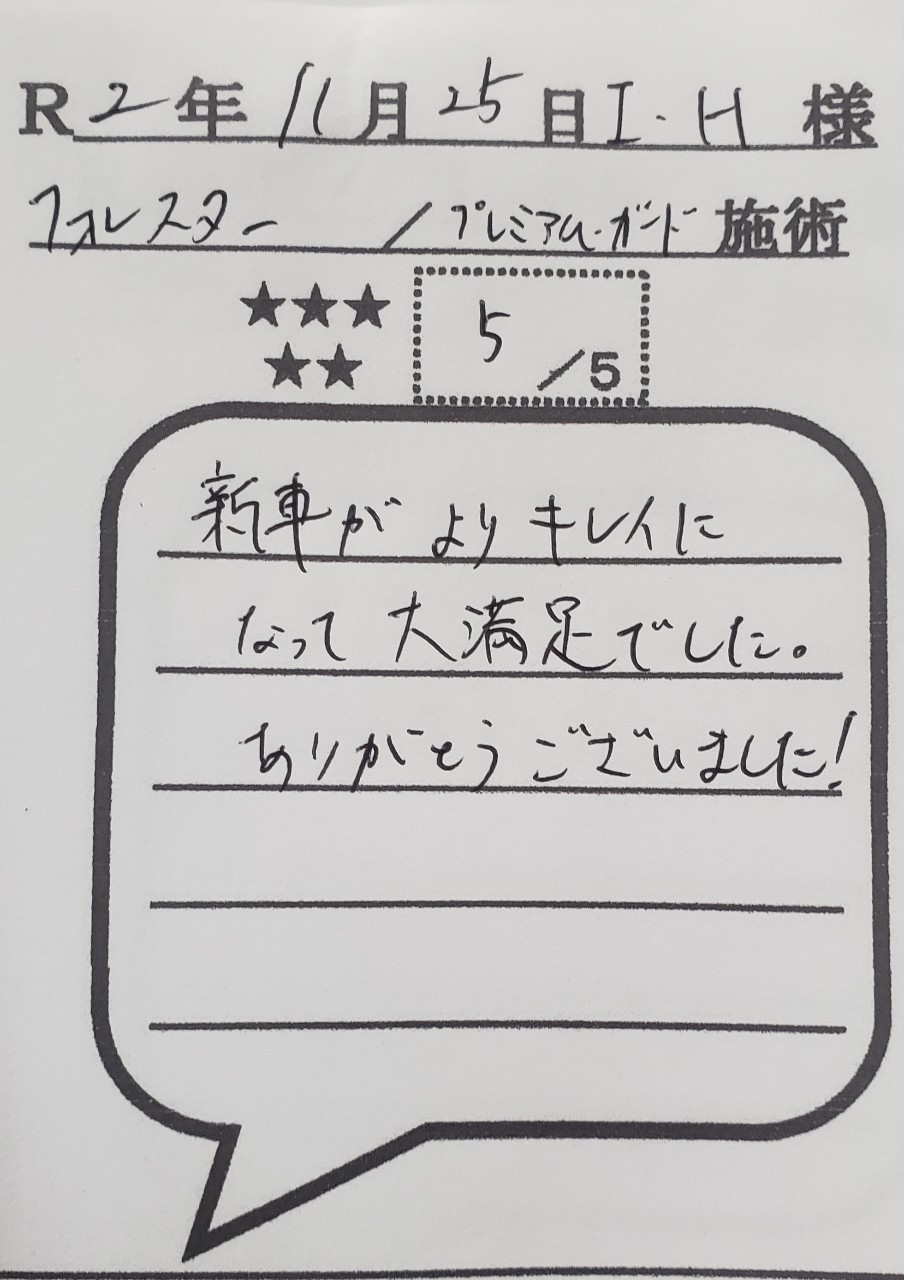 R2年11月25日 I・H 様
フォレスター / プレミアム・ガード 施術
★★★
★★
5/5
新車が より キレイに
なって 大満足でした。
ありがとう ございました!